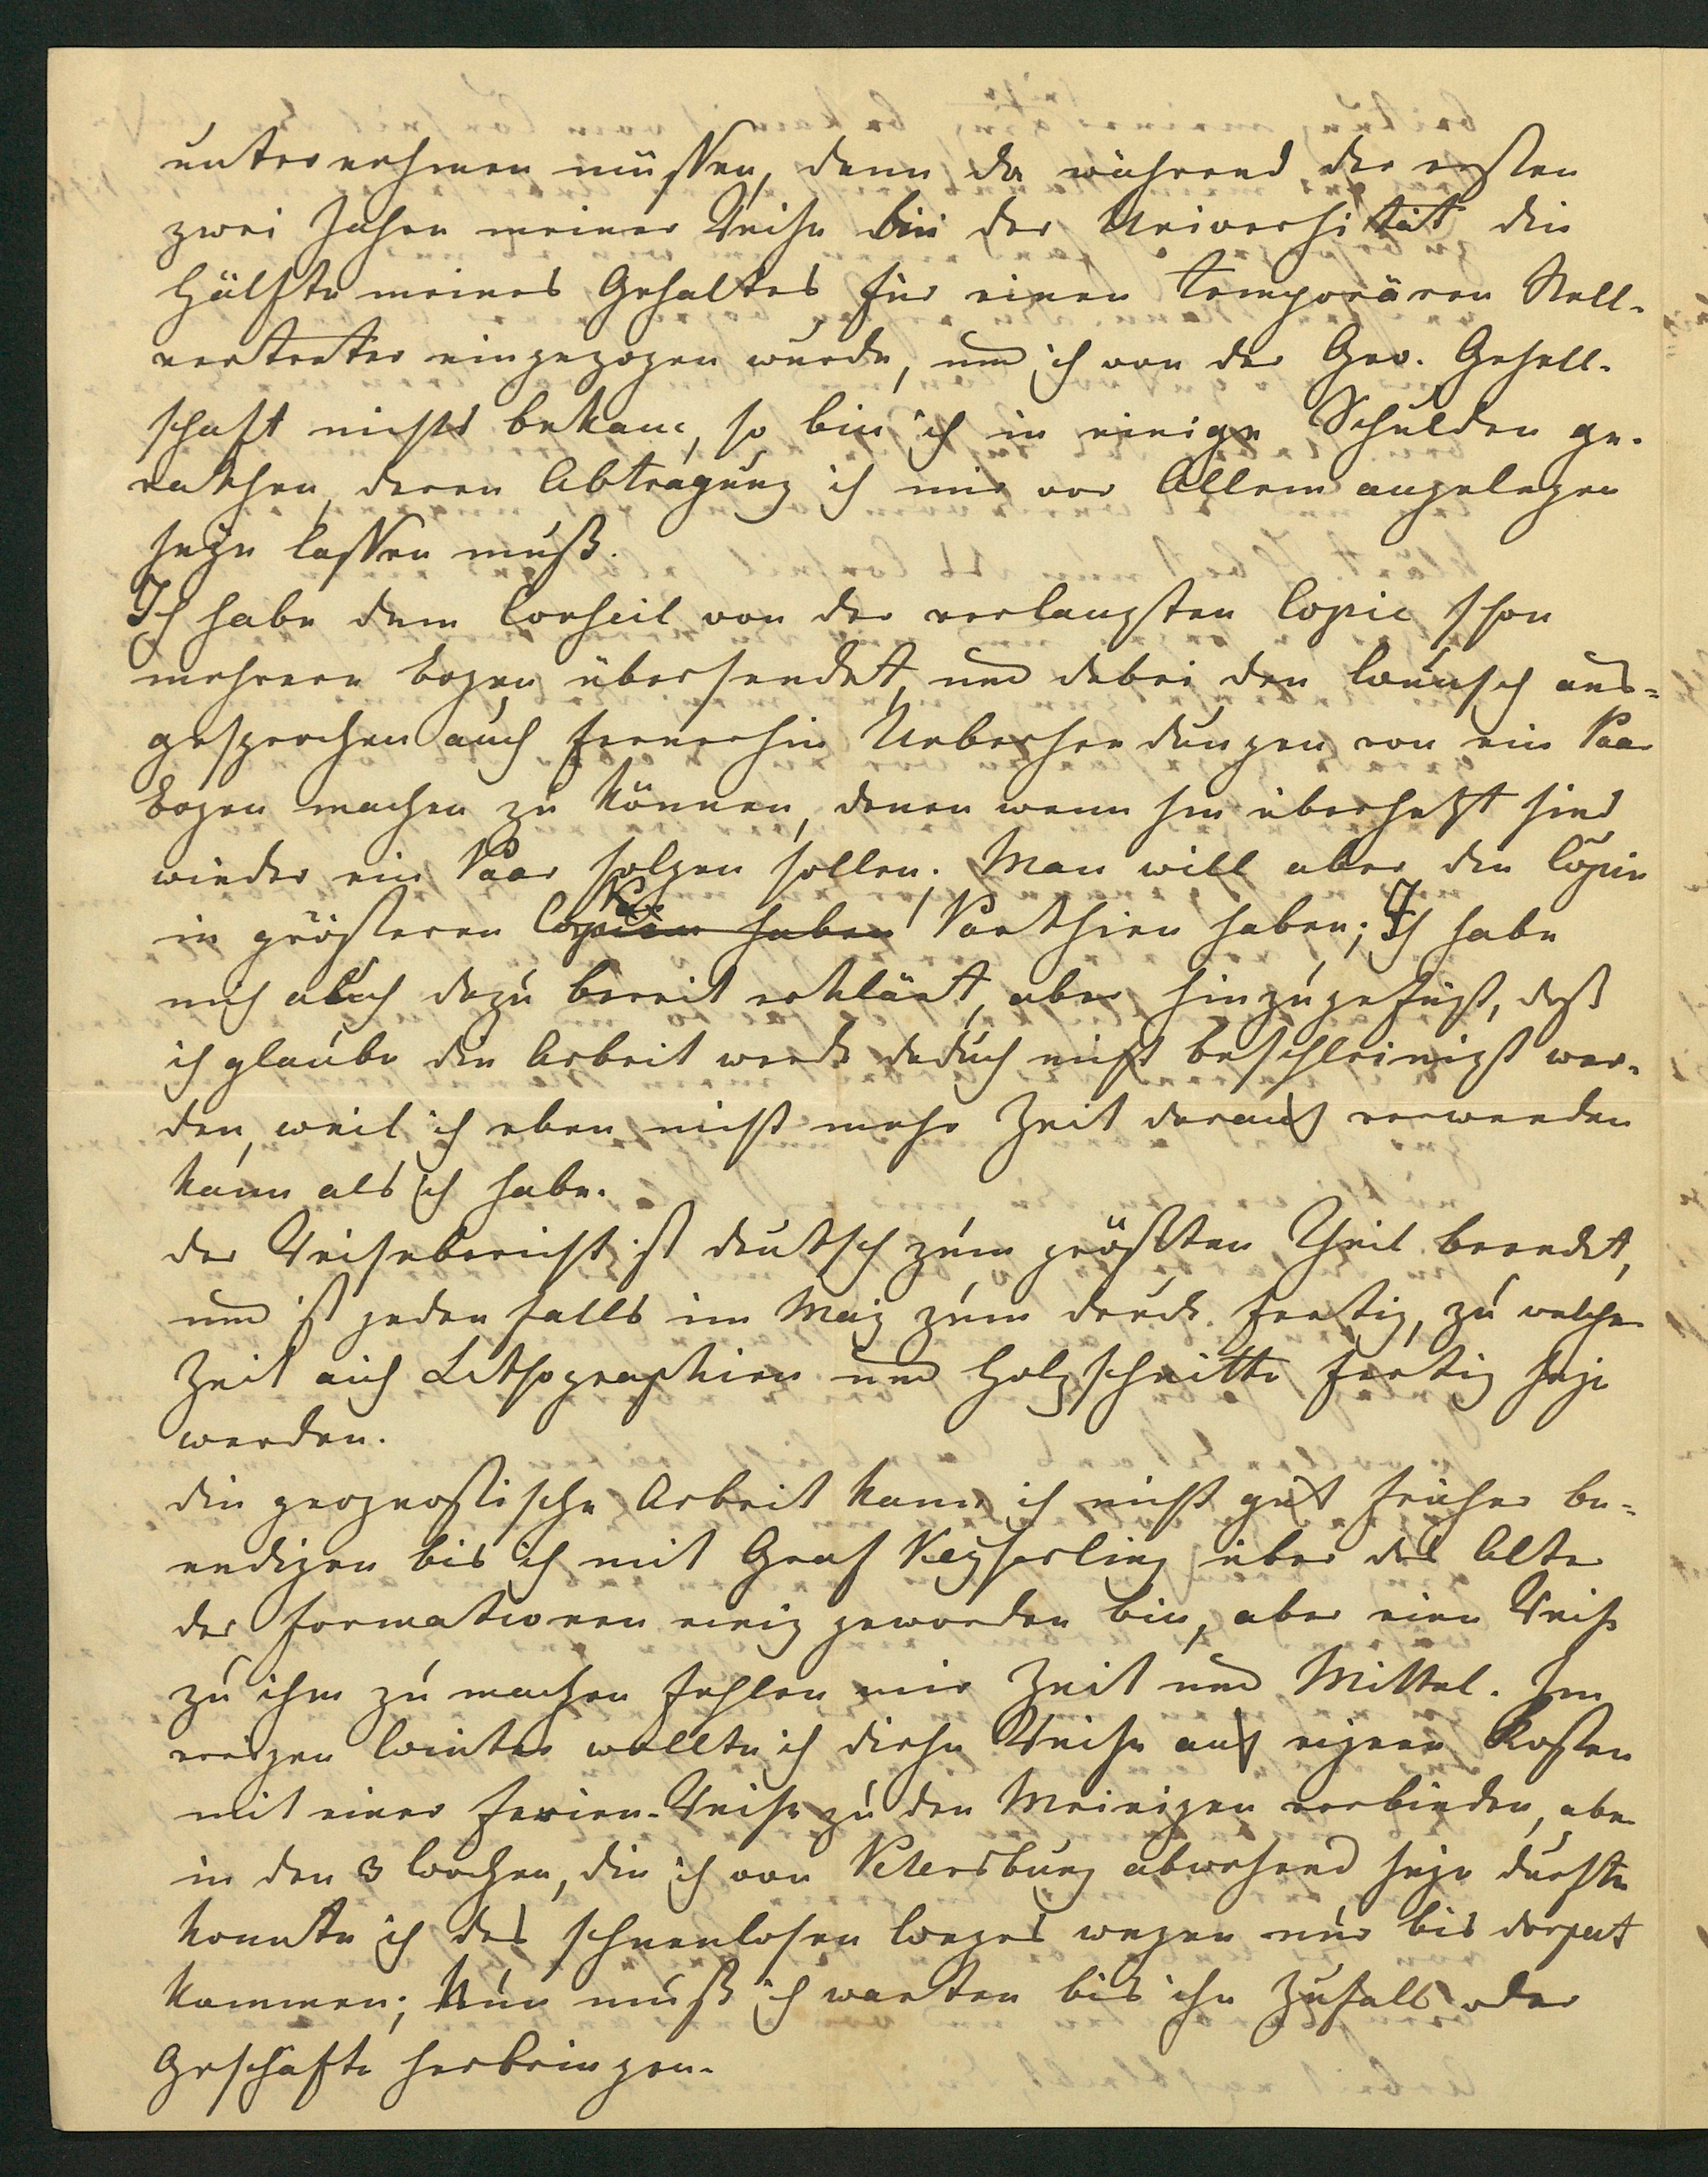 unternehmen müssen, denn da während der ersten
zwei Jahre meiner Reise bei der Universität die
Hälfte meines Gehaltes für einen temporären Stell-
vertreter eingezogen wurde, und ich von der Geo. Gesell-
schaft nichts bekam, so bin ich in einige Schulden ge-
rathen, deren Abtragung ich mir vor Allem angelegen
seyn lassen muß.
Ich habe dem Conseil von der verlangten Copie schon
mehrere Bogen übersendet, und dabei den Wunsch aus-
gesprochen auch fernerhin Uebersendungen von ein Paar
Bogen machen zu können, denen wenn sie übersetzt sind
wieder ein Paar folgen sollen. Man will aber die Copie
in größeren Copien haben Parthien haben; Ich habe
mich auch dazu bereit erklärt, aber hinzugefügt, daß
ich glaube die Arbeit werde dadurch nicht beschleinigt wer-
den, weil ich eben nicht mehr Zeit darauf verwenden
kann als ich habe.
Der Reisebericht ist deutsch zum größten Theil beendet,
und ist jeden falls im May zum Druck fertig, zu welcher
Zeit auch Lithographien und Holzschnitte fertig seyn
werden.
Die geognostische Arbeit kann ich nicht gut früher be-
endigen bis ich mit Graf Keyserling über das Alter
der Formationen einig geworden bin, aber eine Reise
zu ihm zu machen fehlen mir Zeit und Mittel. Im
vorigen Winter wollte ich diese Reise auf eigene Kosten
mit einer Ferien-Reise zu den Meinigen verbinden, aber
in den 3 Wochen, die ich von Petersburg abwesend seyn durfte
konnte ich des schneelosen Weges wegen nur bis Dorpat
kommen; Nun muß ich warten bis ihn Zufall oder
Geschäfte herbringen.